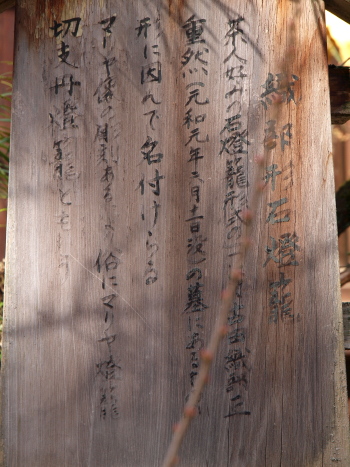 織部形石燈籠
茶人好みの石燈籠形式の一つ 織部正
重然（元和元年 月十一日没）の墓にある
形に因んで名付けらる
マリヤ像の彫刻ある より俗にマリヤ燈籠
切支丹燈籠とも